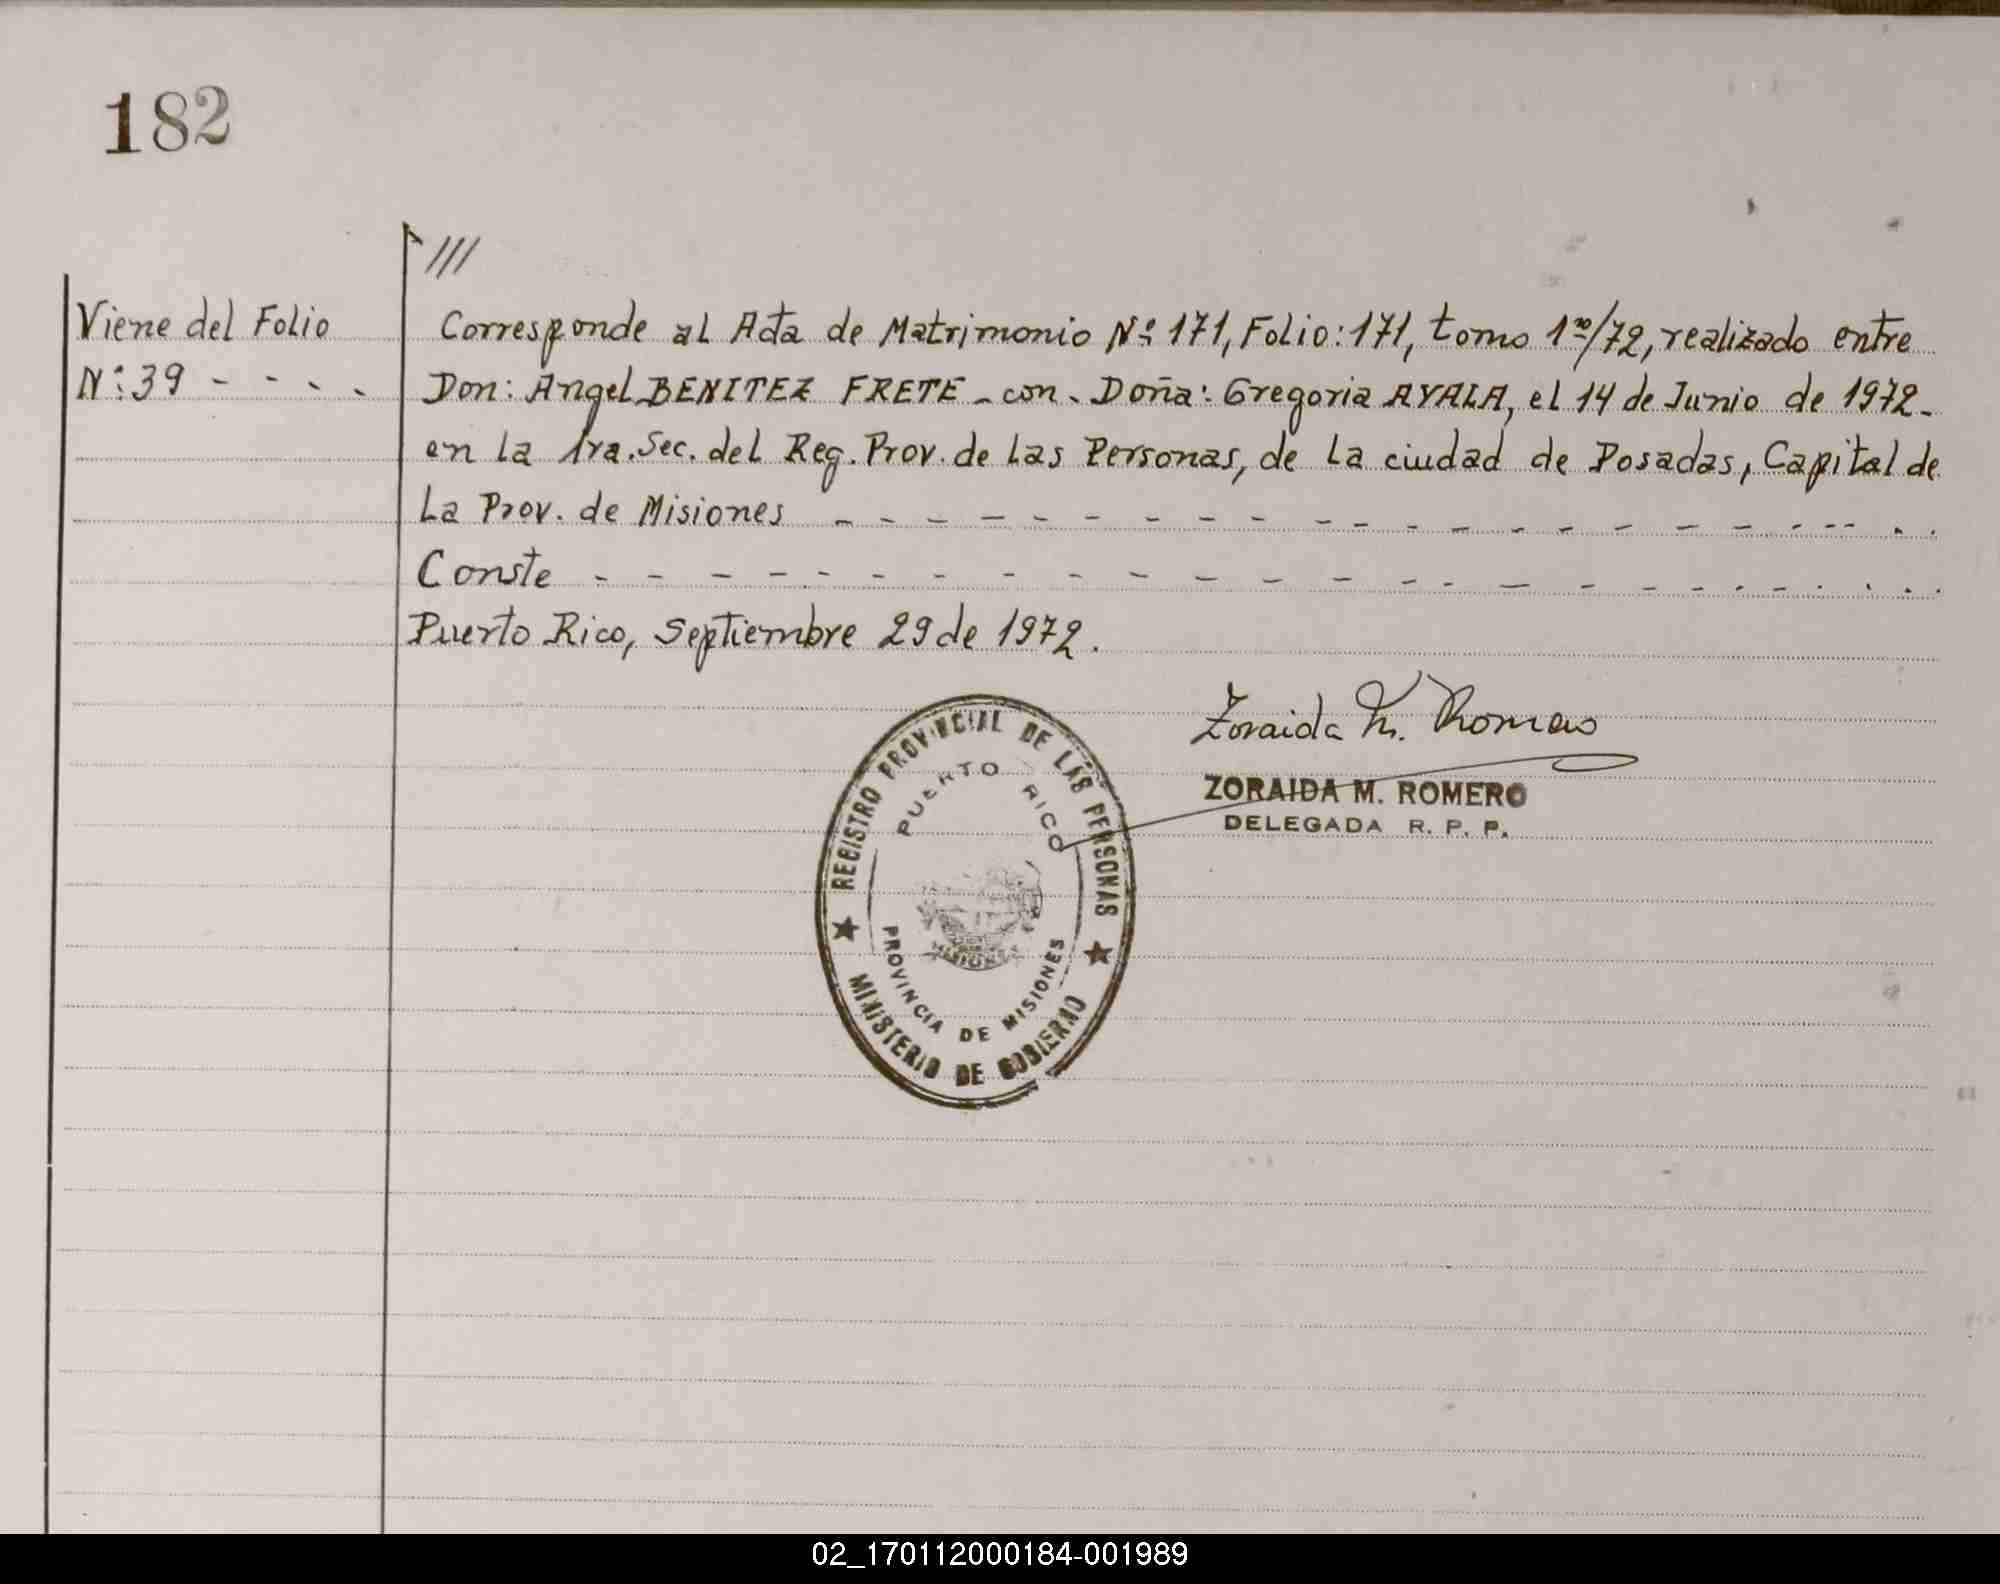 182
///
Viene del Folio
Nº: 39 - - - -
Corresponde al Acta de Matrimonio Nº 171, Folio: 171, tomo 1ro/72, realizado entre
Don: Angel BENITEZ FRETE - con - Doña: Gregoria AYALA, el 14 de Junio de 1972 -
en la 1ra. Sec. del Reg. Prov. de las Personas, de la ciudad de Posadas, Capital de
la Prov. de Misiones - - - - - - - - - - - - - - - - - - - -
Conste - - - - - - - - - - - - - - - - - - - - - - - -
Puerto Rico, Septiembre 29 de 1972.
Zoraida M. Romero
ZORAIDA M. ROMERO
DELEGADA R. P. P.
REGISTRO PROVINCIAL DE LAS PERSONAS
PUERTO RICO
MISIONES
PROVINCIA DE MISIONES
MINISTERIO DE GOBIERNO
02_170112000184-001989